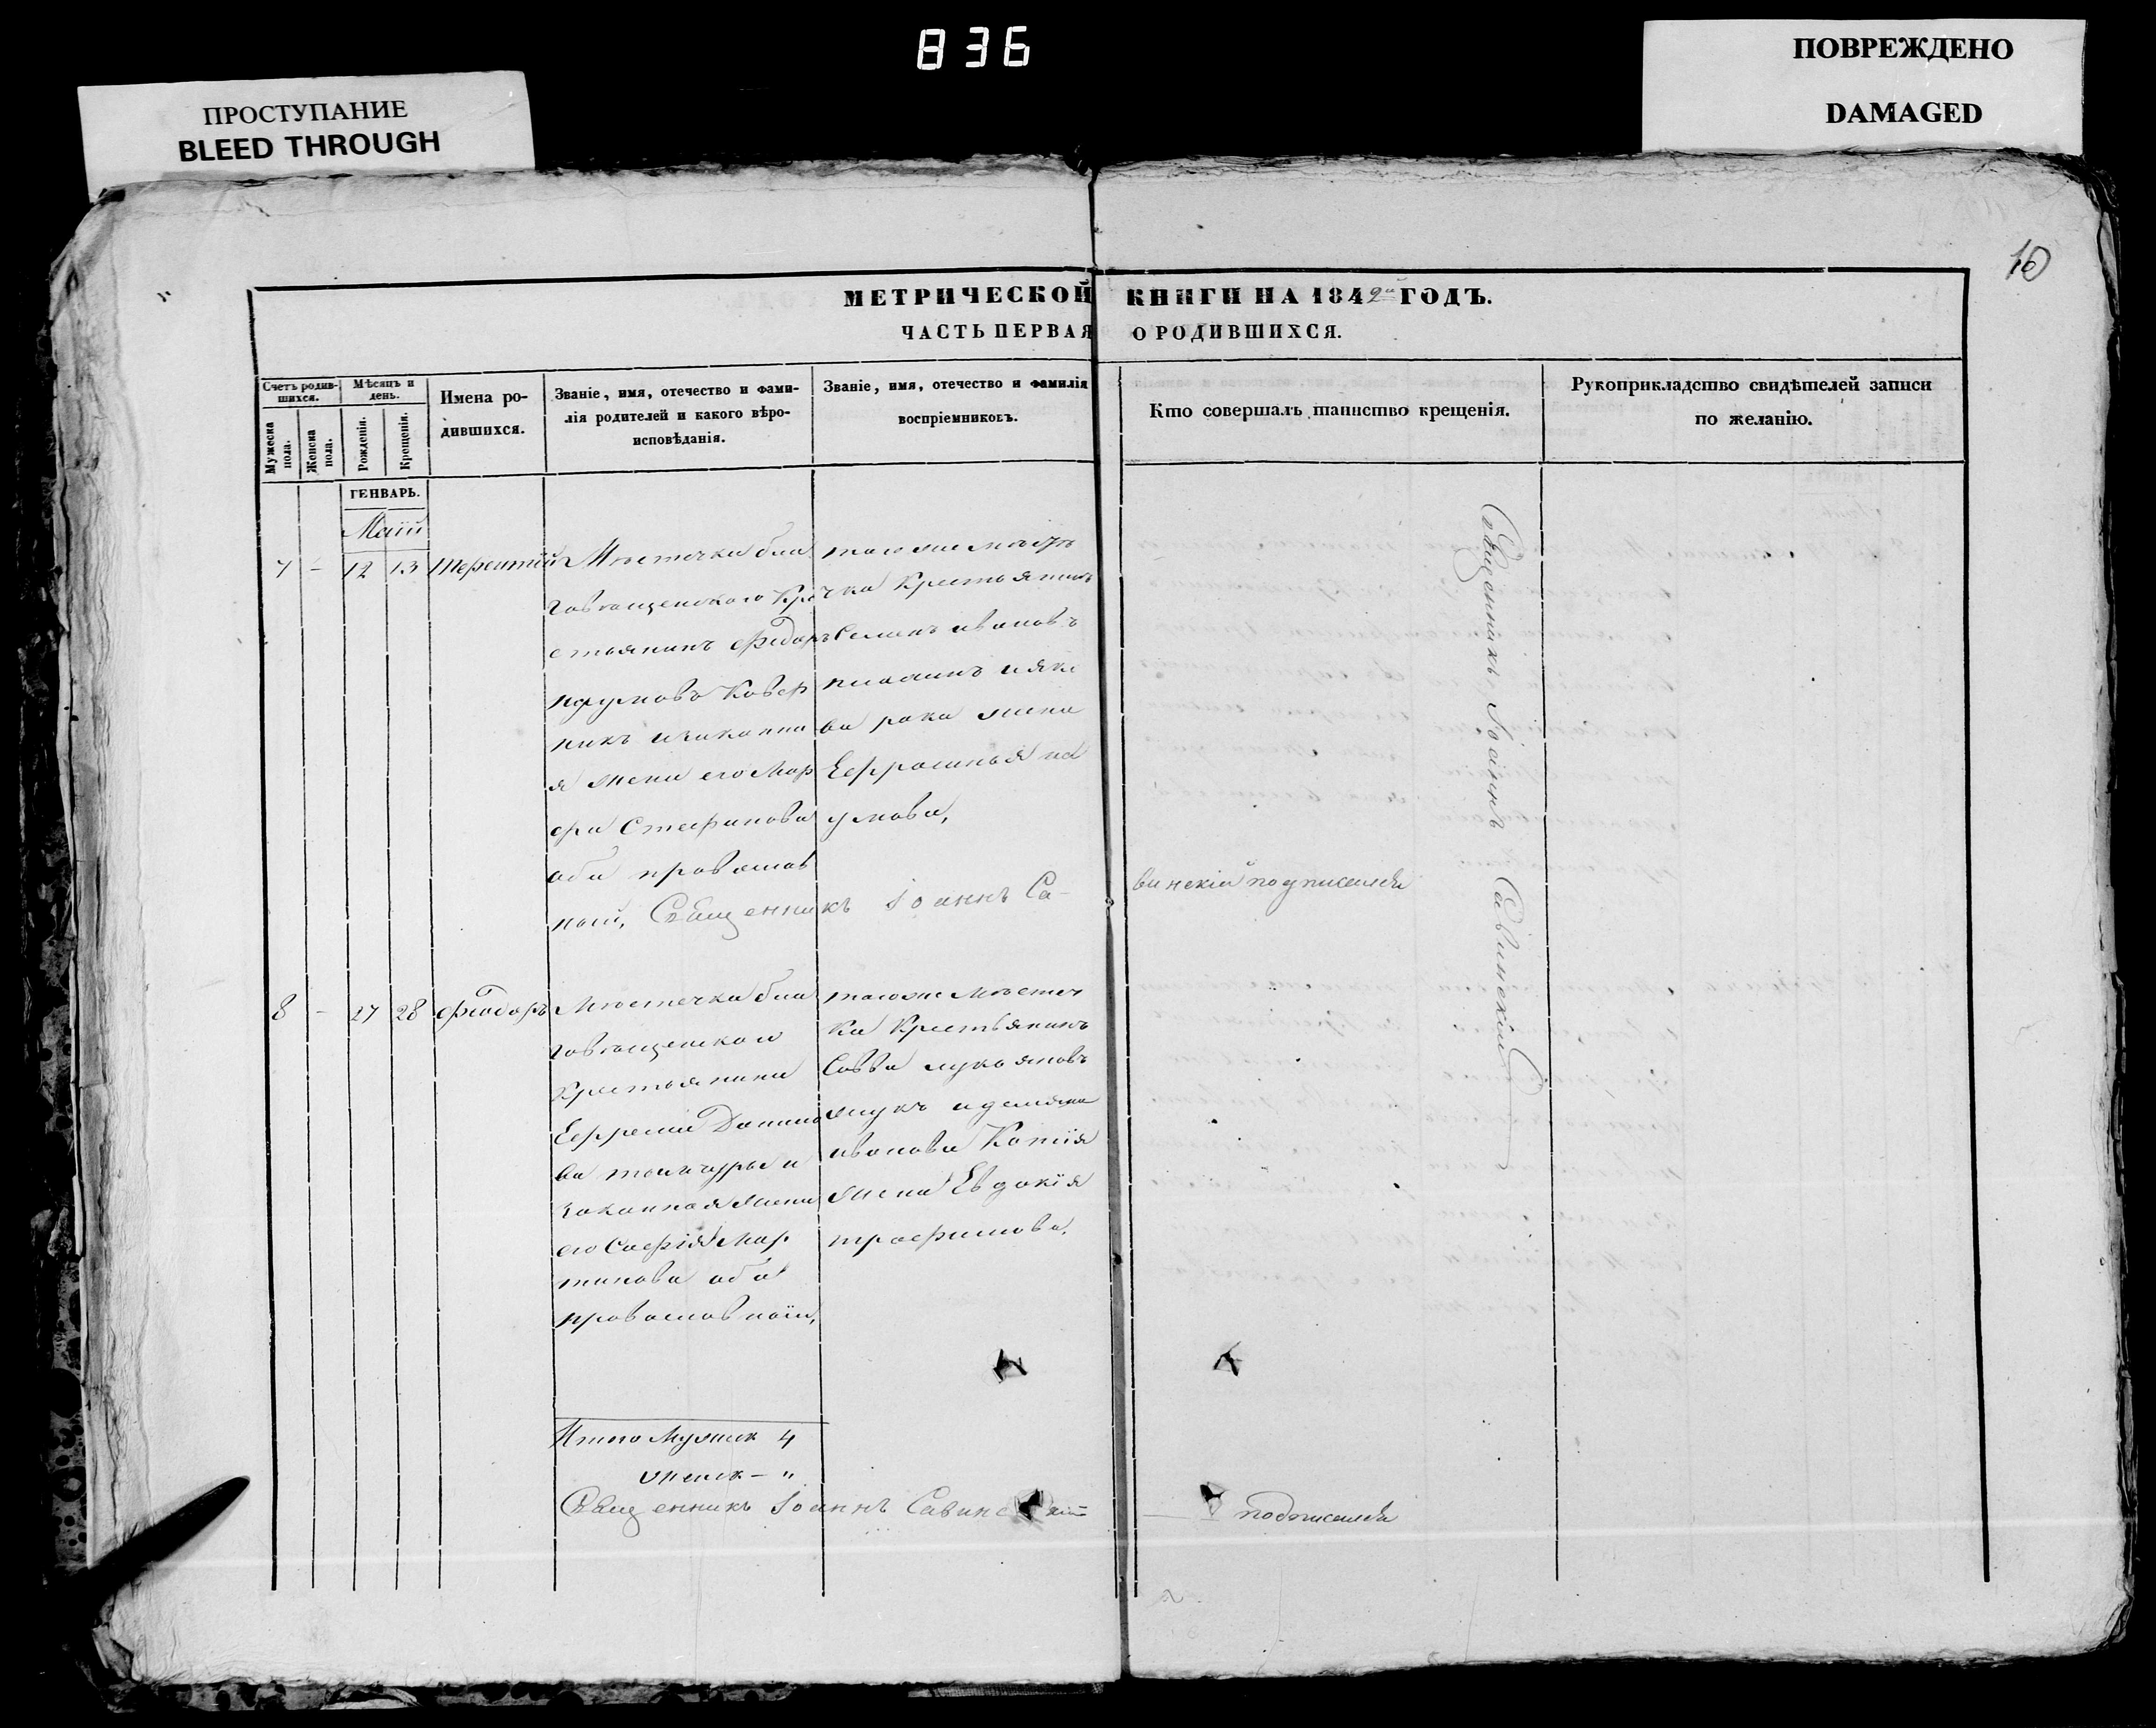 836
ПРОСТУПАНИЕ
BLEED THROUGH
ПОВРЕЖДЕНО
DAMAGED
10
МЕТРИЧЕСКОЙ КНИГИ НА 1842й ГОДЪ.
ЧАСТЬ ПЕРВАЯ О РОДИВШИХСЯ.
Счетъ родив-
шихся.
Мужеска
пола.
Женска
пола.
Мѣсяцъ и
день.
Рожденія.
Крещенія.
Имена ро-
дившихся.
Званіе, имя, отечество и фами-
лія родителей и какого вѣро-
исповѣданія.
Званіе, имя, отечество и фамилія
воспріемниковъ.
Кто совершалъ таинство крещенія.
Рукоприкладство свидѣтелей записи
по желанію.
ГЕНВАРЬ.
Маій
7 - 12 13 Терентій
Мѣстечка бла
говѣщенскаго Кре
стьянинъ Федоръ
Наумовъ Ковер
никъ изаконна
я жена его Мар
фа Стефанова
оба православ
ныи,
тогоже мѣсте
чка Крестьянинъ
Семенъ ивановъ
жена
Ефросинья на
умова,
Священникъ Іоаннъ Са-
винскій подписался
Священникъ Іоаннъ Савинскій
8 - 27 28 Феодоръ
Мѣстечка бла
говѣщенскаго
Крестьянина
Ефрема Данило
ва и
законная жена
его Софія Мар
тинова оба
православныи,
тогоже Мѣстеч
ка Крестьянинъ
Савва лукьяновъ
жукъ
иванова
жена Евдокія
трофимова,
Итого Мужск 4
женск - "
Священникъ Іоаннъ Савинскій
подписался